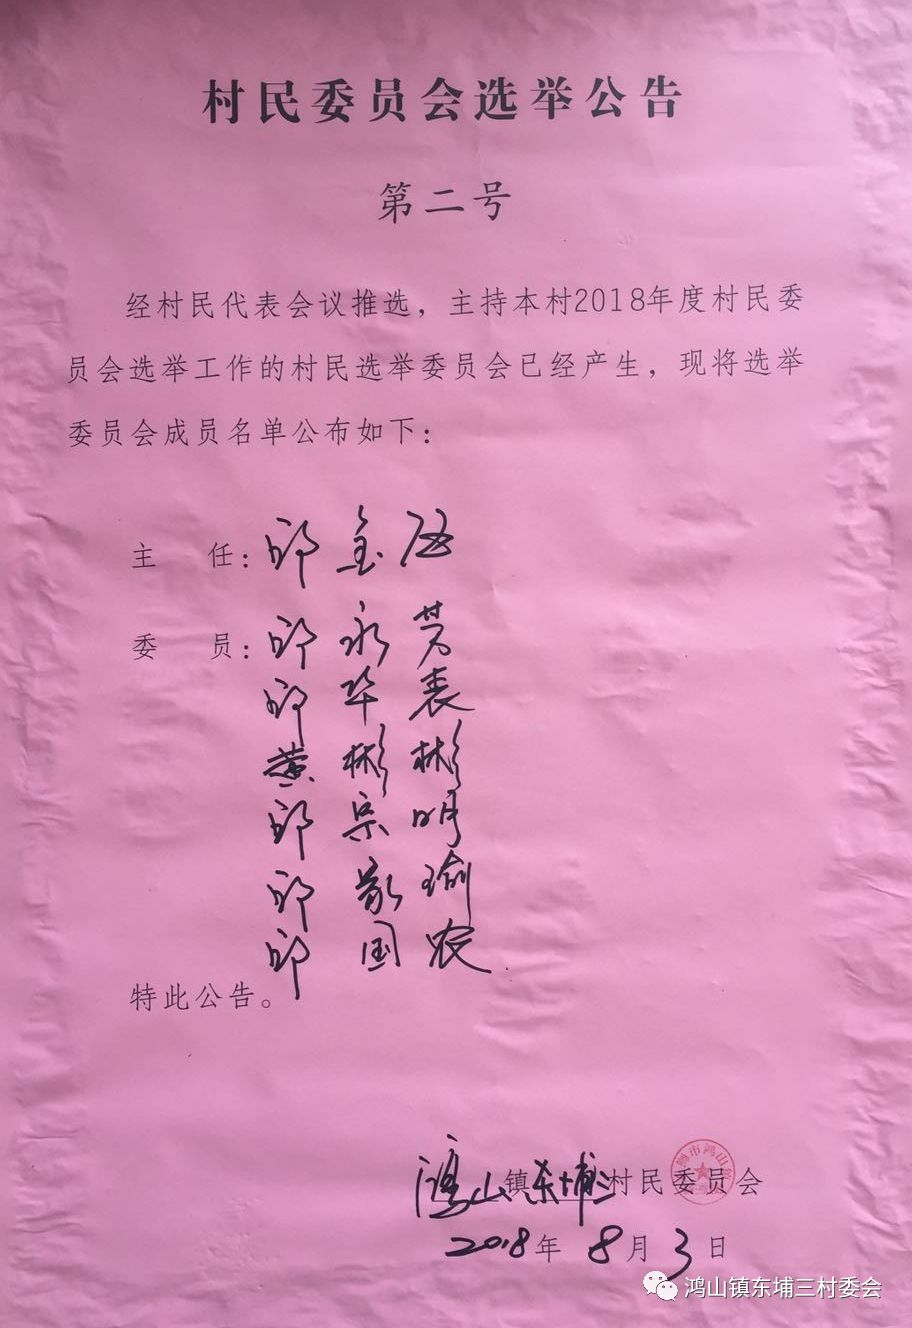 村民委员会选举公告
第二号
经村民代表会议推选，主持本村2018年度村民委
员会选举工作的村民选举委员会已经产生，现将选举
委员会成员名单公布如下：
主 任：邱金伍
委 员：邱永芳
邱华表
黄彬彬
邱宗明
邱 瑜
邱国农
特此公告。
鸿山镇东埔三村民委员会
2018年8月3日
鸿山镇东埔三村委会